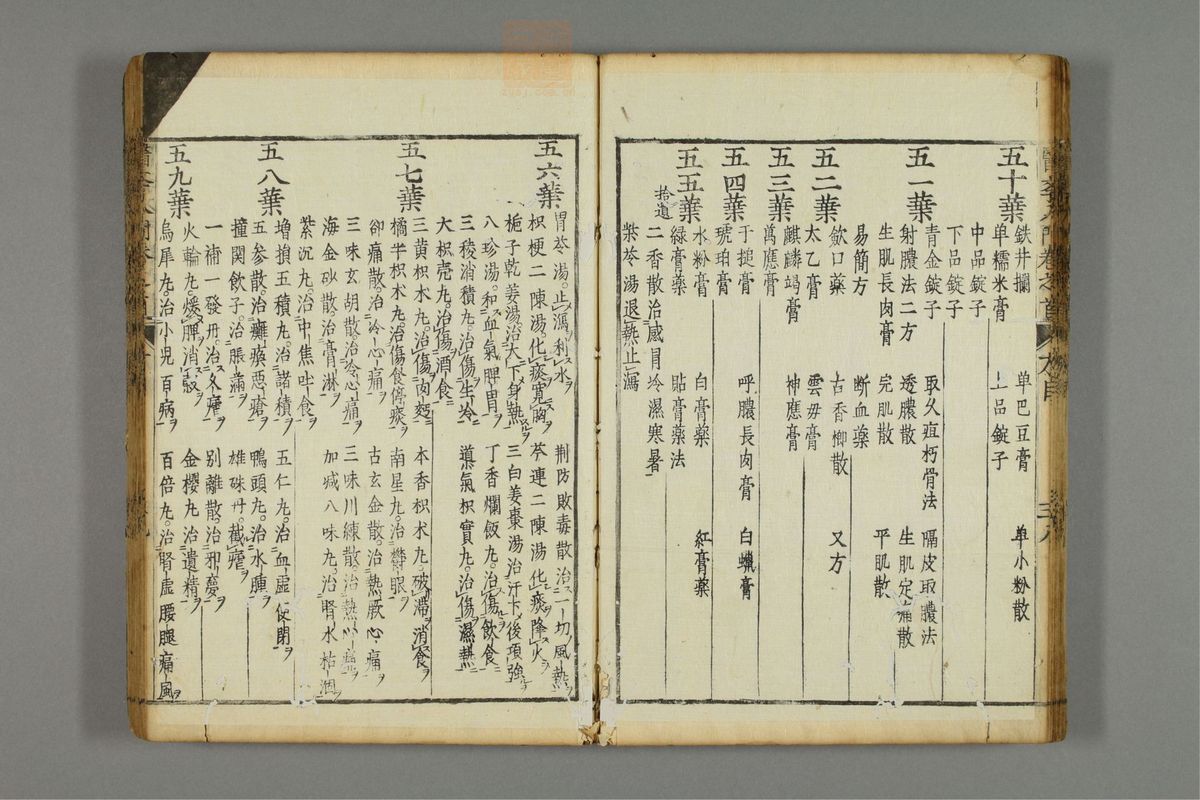 五十葉
鉄井攔 單巴豆膏 单小粉散
单糯米膏 上品錠子
中品錠子
下品錠子
青金錠子 取久疽朽骨法 隔皮取膿法
五一葉
射膿法二方 透膿散 生肌定痛散
生肌長肉膏 完肌散 平肌散
易簡方 断血藥
歛口藥 古香柳散 又方
五二葉
太乙膏 雲母膏
麒麟竭膏 神應膏
五三葉
萬應膏
于搥膏 呼膿長肉膏 白蠟膏
五四葉
琥珀膏
水粉膏 白膏藥 紅膏藥
五五葉
緑膏藥 貼膏藥法
拾遺
二香散治感冒冷濕寒暑
柴苓湯退熱止瀉
五六葉
胃苓湯止瀉利水 荆防敗毒散治一切風熱
枳梗二陳湯化痰寛胸 芩連二陳湯化痰降火
梔子乾姜湯治大下身熱 三白姜棗湯治汗下後項強
八珍湯和血氣脾胃 丁香爛飯丸治傷飲食
三稜消積丸治傷生冷 導氣枳實丸治傷濕熱
大枳壳丸治傷酒食
五七葉
三黄枳术丸治傷肉麪 木香枳术丸破滯消食
橘半枳术丸治傷食停痰 南星丸治欝
却痛散治冷心痛 古玄金散治熱厥心痛
三味玄胡散治冷心痛 三味川練散治熱心痛
海金砂散治膏淋 加减八味丸治腎水枯涸
紫沉丸治中焦吐食
五八葉
増損五積丸治諸積 五仁丸治血虚便閉
五参散治癱瘓惡瘡 鴨頭丸治水腫
撞関飲子治脹滿 雄硃丹截瘧
一補一發丹治久瘧 别離散治邪夢
五九葉
火輪丸煖脾消穀 金櫻丸治遺精
烏犀丸治小児百病 百倍丸治腎虚腰腿痛風